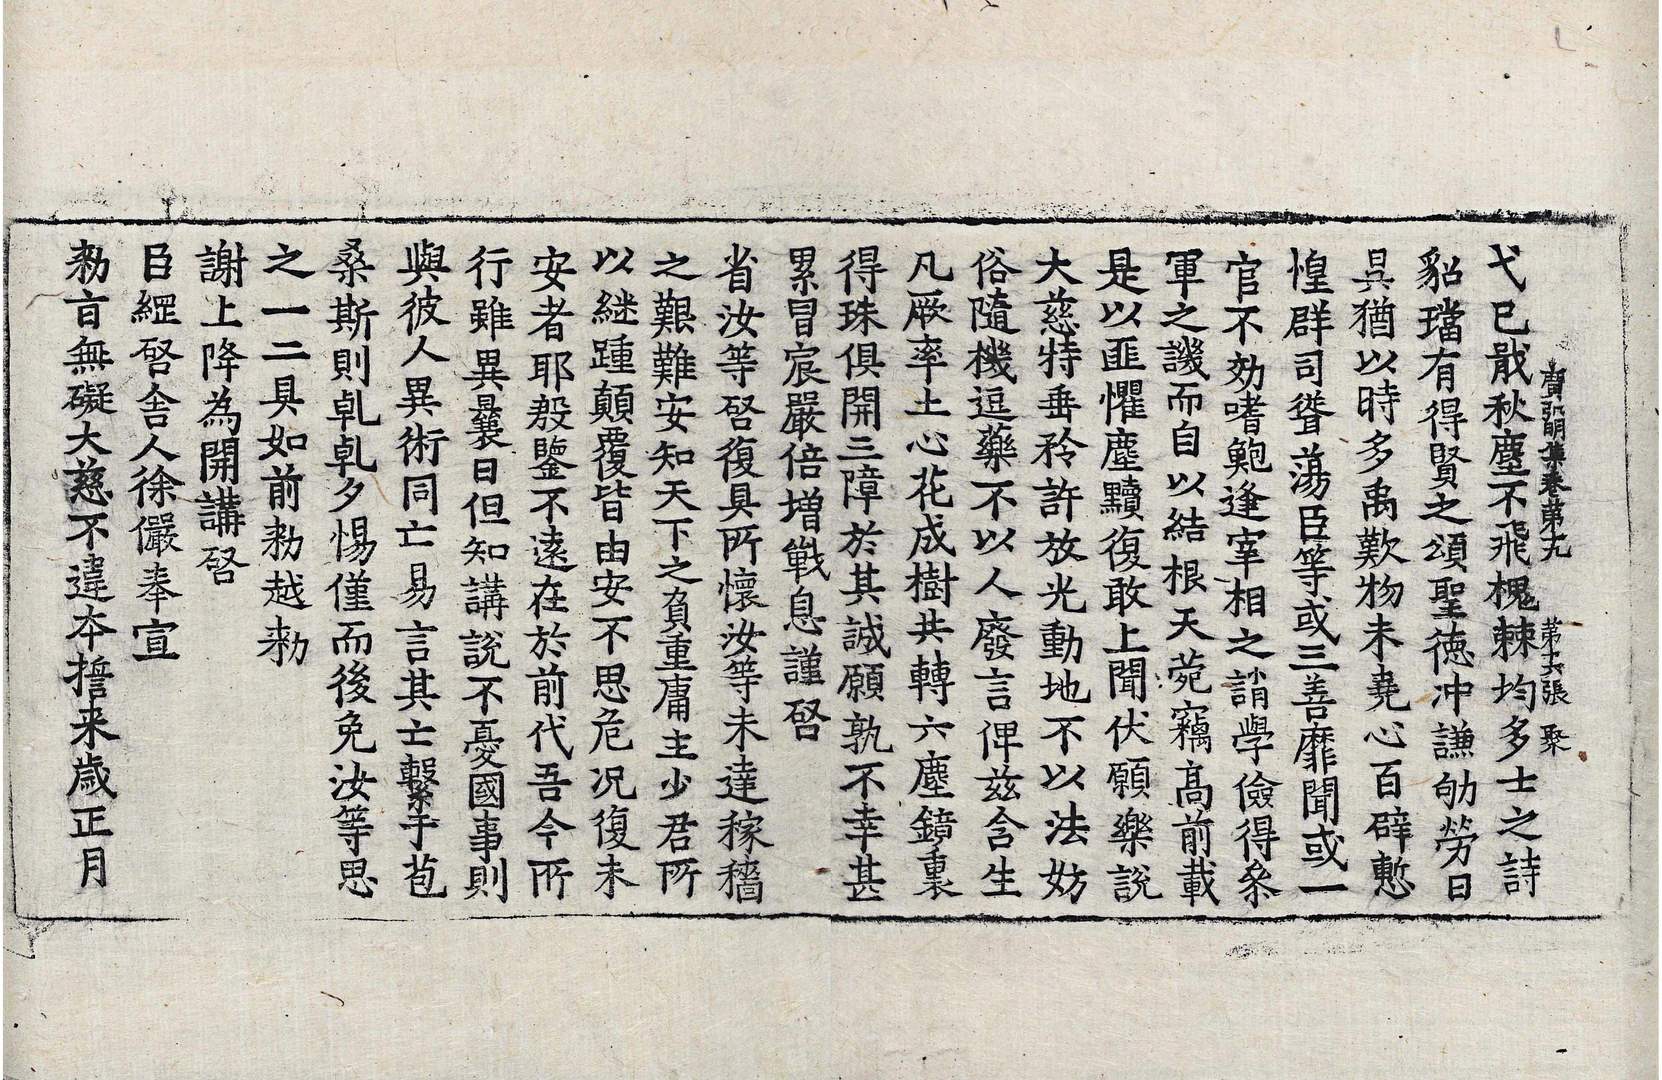 廣弘明集卷第十九 第六張 聚
弋已戢秋塵不飛槐棘均多士之詩
貂璫有得賢之頌聖德冲謙劬勞日
昃猶以時多禹歎物未堯心百辟慙
惶群司聳蕩臣等或三善靡聞或一
官不効嗜鮑逢宰相之誚學儉得叅
軍之譏而自以結根天菀竊高前載
是以匪懼塵黷復敢上聞伏願樂說
大慈特垂矜許放光動地不以法妨
俗隨機逗藥不以人廢言俾兹含生
凡厥率土心花成樹共轉六塵鏡裏
得珠俱開三障於其誠願孰不幸甚
累冒宸嚴倍增戰息謹啓
省汝等啓復具所懷汝等未達稼穡
之艱難安知天下之負重庸主少君所
以継踵顛覆皆由安不思危况復未
安者耶殷鑒不遠在於前代吾今所
行雖異曩日但知講說不憂國事則
與彼人異術同亡易言其亡繫于苞
桑斯則乹乹夕惕僅而後免汝等思
之一二具如前勑越勑
謝上降為開講啓
臣綱啓舍人徐儼奉宣
勑旨無礙大慈不違本誓来歲正月